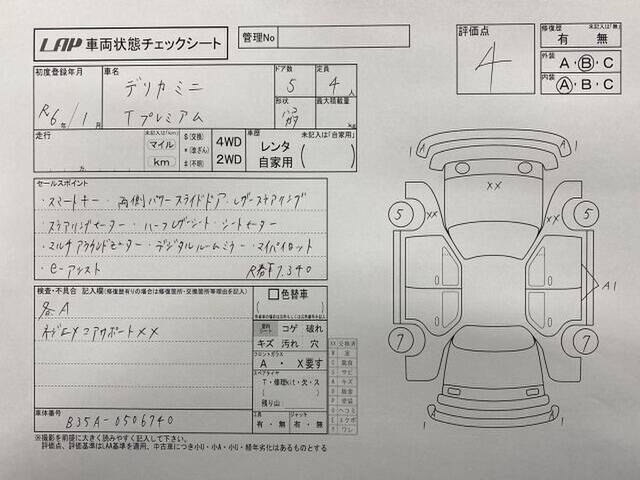 LAP 車両状態チェックシート
管理No
評価点
4
修復歴 未記入は「無」
有 無
外装
A・B・C
内装
A・B・C
初度登録年月
R6年/1月
車名
デリカミニ
Tプレミアム
ドア数
5
定員
4人
形状
最大積載量
kg
走行
万
未記入は(km)
マイル
km
$(交換)
*(改ざん)
#(不明)
4WD
2WD
車歴 未記入は「自家用」
レンタ
自家用
セールスポイント
・スマートキー・両側パワースライドドア・レザーステアリング
・ステアリングヒーター・ハーフレザーシート・シートヒーター
・マルチアラウンドモニター・デジタルルームミラー・マイパイロット
・e-アシスト R券¥7.340
検査・不具合 記入欄(修復歴有りの場合は修復箇所・交換箇所等理由を記入)
各A
XX
色替車
コゲ 破れ
キズ 汚れ 穴
フロントガラス
A ・ X要す
スペアタイヤ
T・修理kit・欠・ス
残り山
工具
有・無
ジャッキ
有・無
XX 交換済
W 波
C 腐食
S サビ
A キズ
P 塗装
G ヘコミ
U エクボ
Y ワレ
車体番号
B35A-0506740
※撮影を前提に大きく読みやすく記入して下さい。
評価点、評価基準はLAA基準を適用、中古車につき小U・小A・小G・経年劣化はあるものとする
1 A A 1
XX
5 XX XX 5
A1
7 7
1